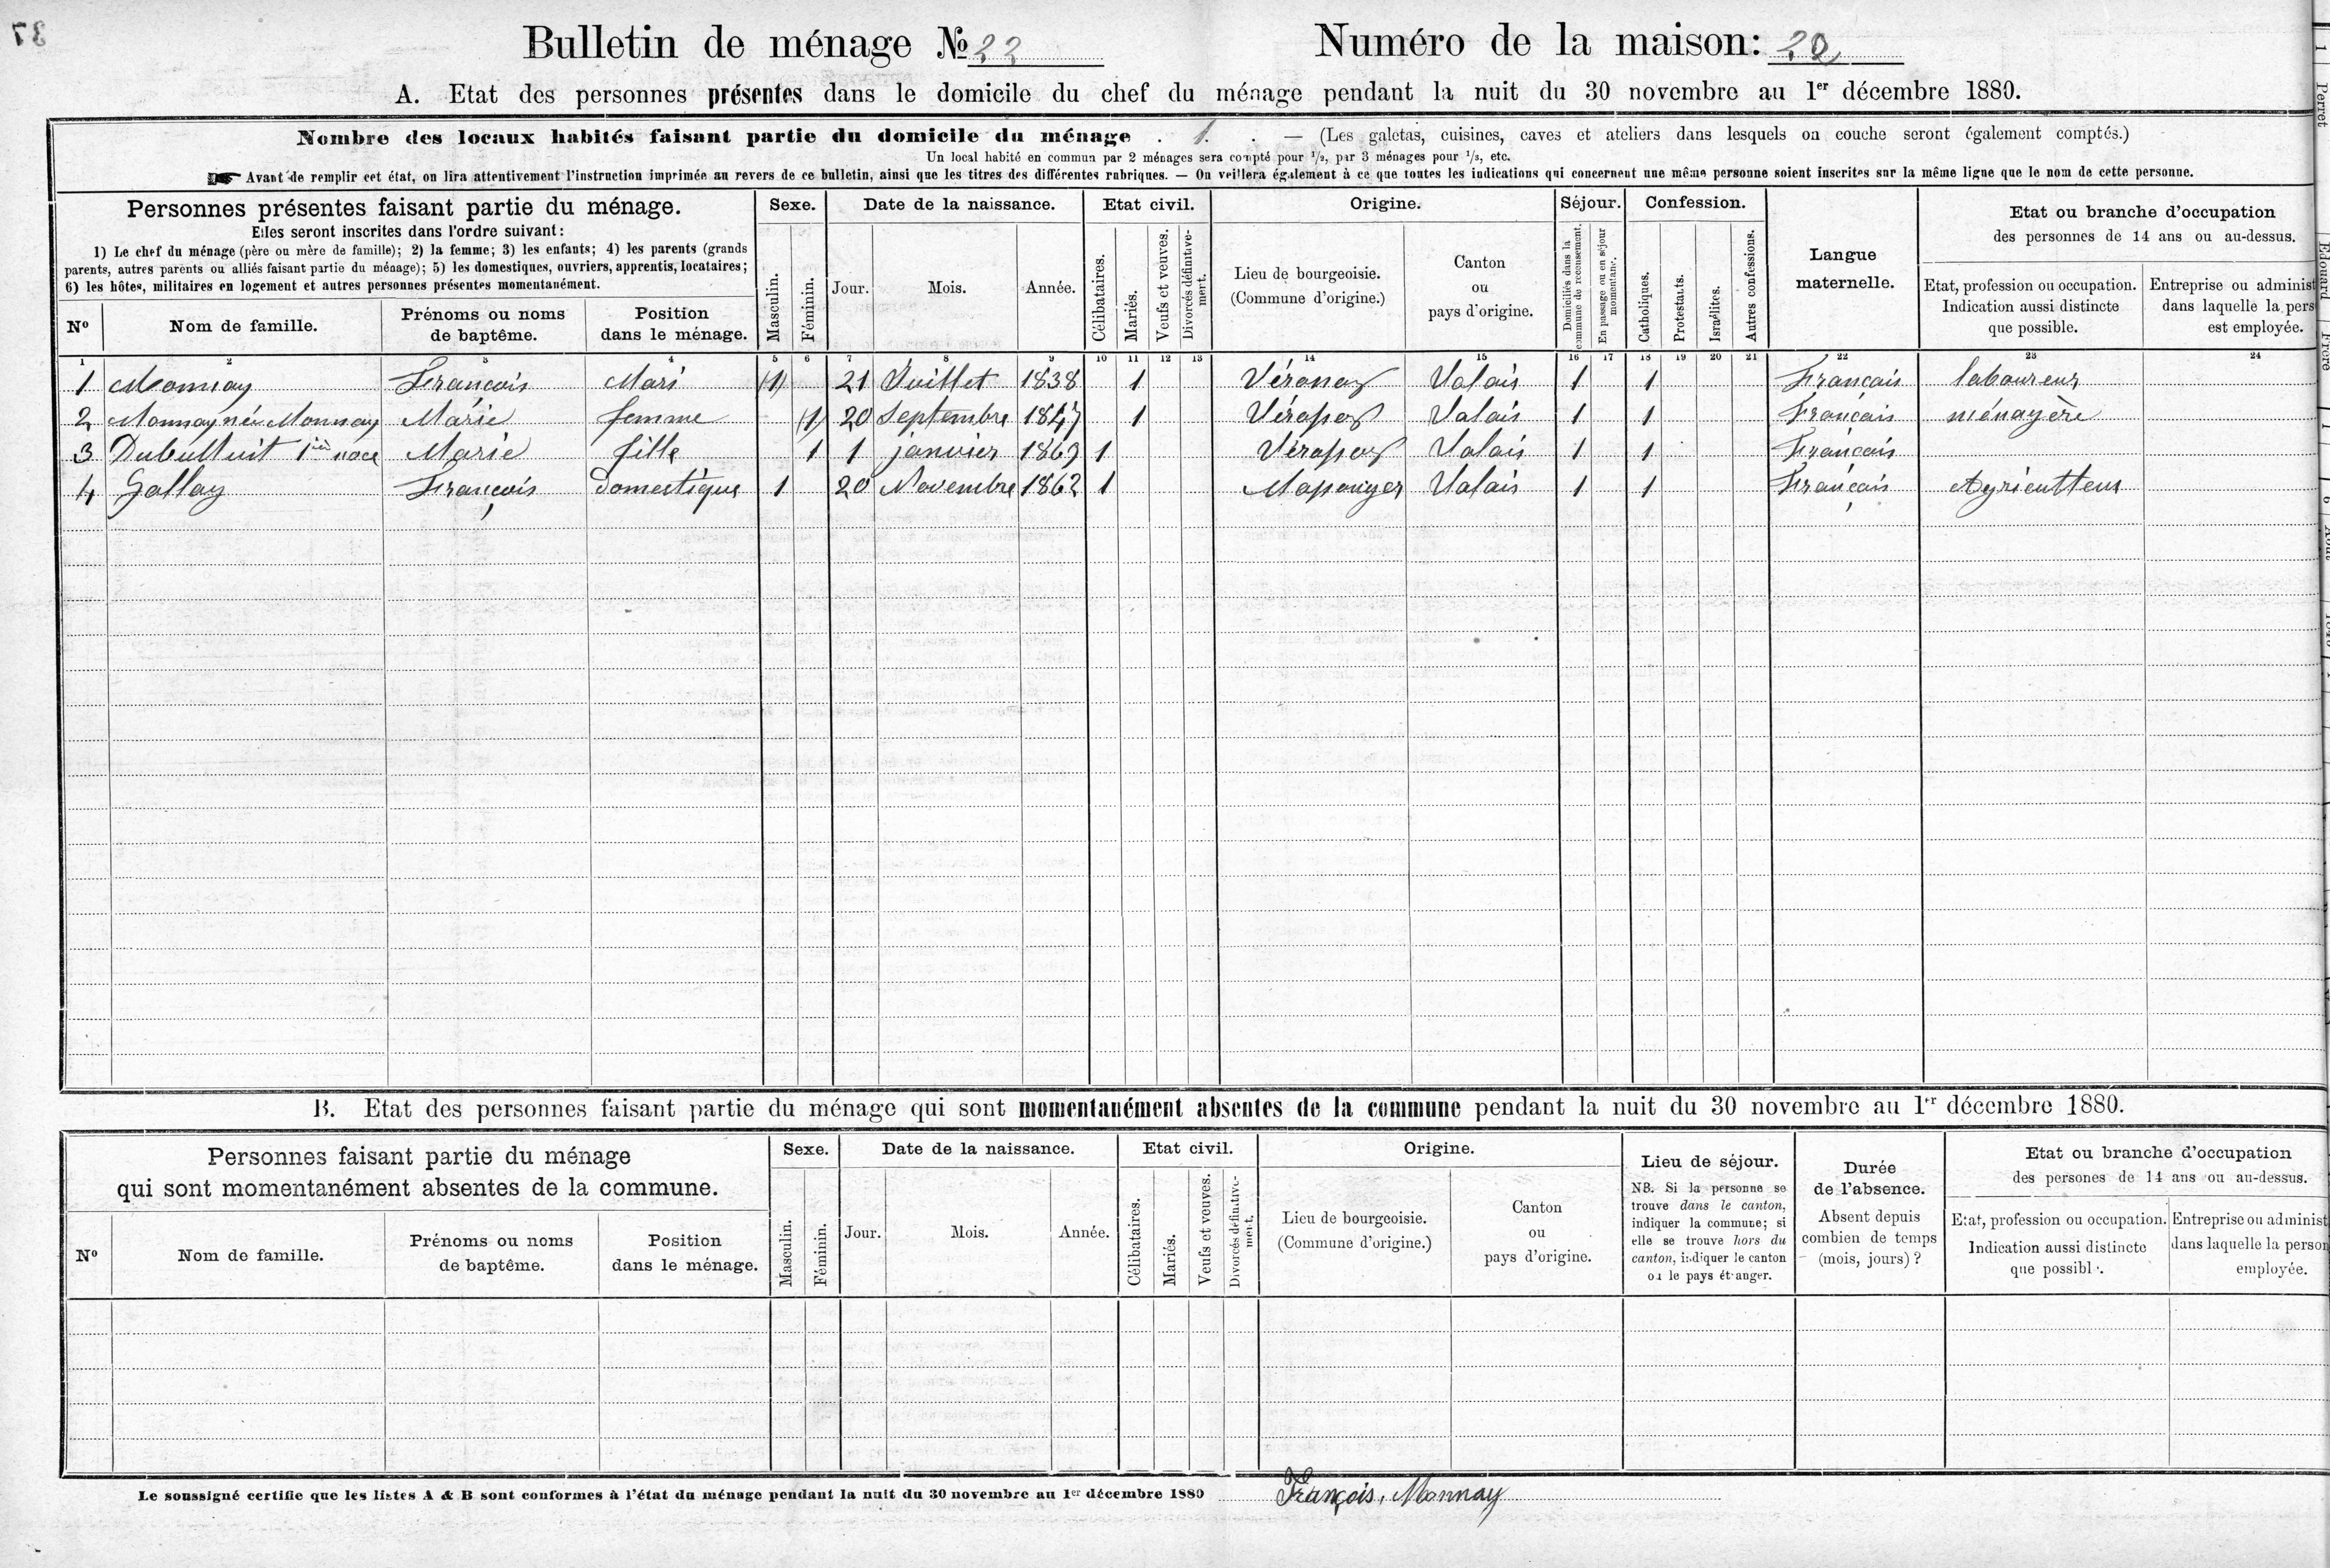 37
Bulletin de ménage № 22
Numéro de la maison: 20
A. Etat des personnes présentes dans le domicile du chef du ménage pendant la nuit du 30 novembre au 1er décembre 1880.
Nombre des locaux habités faisant partie du domicile du ménage . 1. . — (Les galetas, cuisines, caves et ateliers dans lesquels on couche seront également comptés.)
Un local habité en commun par 2 ménages sera compté pour 1/2, par 3 ménages pour 1/3, etc.
Avant de remplir cet état, on lira attentivement l'instruction imprimée au revers de ce bulletin, ainsi que les titres des différentes rubriques. — On veillera également à ce que toutes les indications qui concernent une même personne soient inscrites sur la même ligne que le nom de cette personne.
Personnes présentes faisant partie du ménage.
Elles seront inscrites dans l'ordre suivant:
1) Le chef du ménage (père ou mère de famille); 2) la femme; 3) les enfants; 4) les parents (grands
parents, autres parents ou alliés faisant partie du ménage); 5) les domestiques, ouvriers, apprentis, locataires;
6) les hôtes, militaires en logement et autres personnes présentes momentanément.
N°
Nom de famille.
Prénoms ou noms
de baptême.
Position
dans le ménage.
Sexe.
Masculin.
Féminin.
Date de la naissance.
Jour.
Mois.
Année.
Etat civil.
Célibataires.
Mariés.
Veufs et veuves.
Divorcés définitive-
ment.
Origine.
Lieu de bourgeoisie.
(Commune d'origine.)
Canton
ou
pays d'origine.
Séjour.
Domiciliés dans la
commune de recensement.
En passage ou en séjour
momentané.
Confession.
Catholiques.
Protestants.
Israélites.
Autres confessions.
Langue
maternelle.
Etat ou branche d'occupation
des personnes de 14 ans ou au-dessus.
Etat, profession ou occupation.
Indication aussi distincte
que possible.
Entreprise ou administ
dans laquelle la pers
est employée.
1 2 3 4 5 6 7 8 9 10 11 12 13 14 15 16 17 18 19 20 21 22 23 24
1 Monnay François Mari 1 21 Juillet 1838 1 Vérossaz Valais 1 1 Français laboureur
2 Monnay née Monnay Marie femme 1 20 Septembre 1847 1 Vérossaz Valais 1 1 Français ménagère
3 Dubulluit 1ière noce Marie fille 1 1 janvier 1869 1 Vérossaz Valais 1 1 Français
4 Gallay François domestique 1 20 Novembre 1862 1 Massonger Valais 1 1 Français Agriculteur
B. Etat des personnes faisant partie du ménage qui sont momentanément absentes de la commune pendant la nuit du 30 novembre au 1er décembre 1880.
Personnes faisant partie du ménage
qui sont momentanément absentes de la commune.
N°
Nom de famille.
Prénoms ou noms
de baptême.
Position
dans le ménage.
Sexe.
Masculin.
Féminin.
Date de la naissance.
Jour.
Mois.
Année.
Etat civil.
Célibataires.
Mariés.
Veufs et veuves.
Divorcés définitive-
ment.
Origine.
Lieu de bourgeoisie.
(Commune d'origine.)
Canton
ou
pays d'origine.
Lieu de séjour.
NB. Si la personne se
trouve dans le canton,
indiquer la commune; si
elle se trouve hors du
canton, indiquer le canton
ou le pays étranger.
Durée
de l'absence.
Absent depuis
combien de temps
(mois, jours)?
Etat ou branche d'occupation
des persones de 14 ans ou au-dessus.
Etat, profession ou occupation.
Indication aussi distincte
que possible.
Entreprise ou administ
dans laquelle la person
employée.
Le soussigné certifie que les listes A & B sont conformes à l'état du ménage pendant la nuit du 30 novembre au 1er décembre 1880
François, Monnay
1 Perret
Edouard
Frère